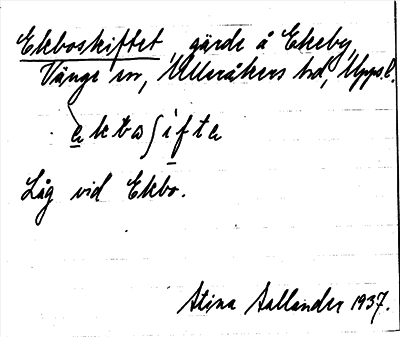 Ekboskiftet, gärde å Ekeby,
Vänge sn, Ulleråkers hd, Upps. l.
ekboʃifta
Låg vid Ekbo.
Stina Sallander 1937.